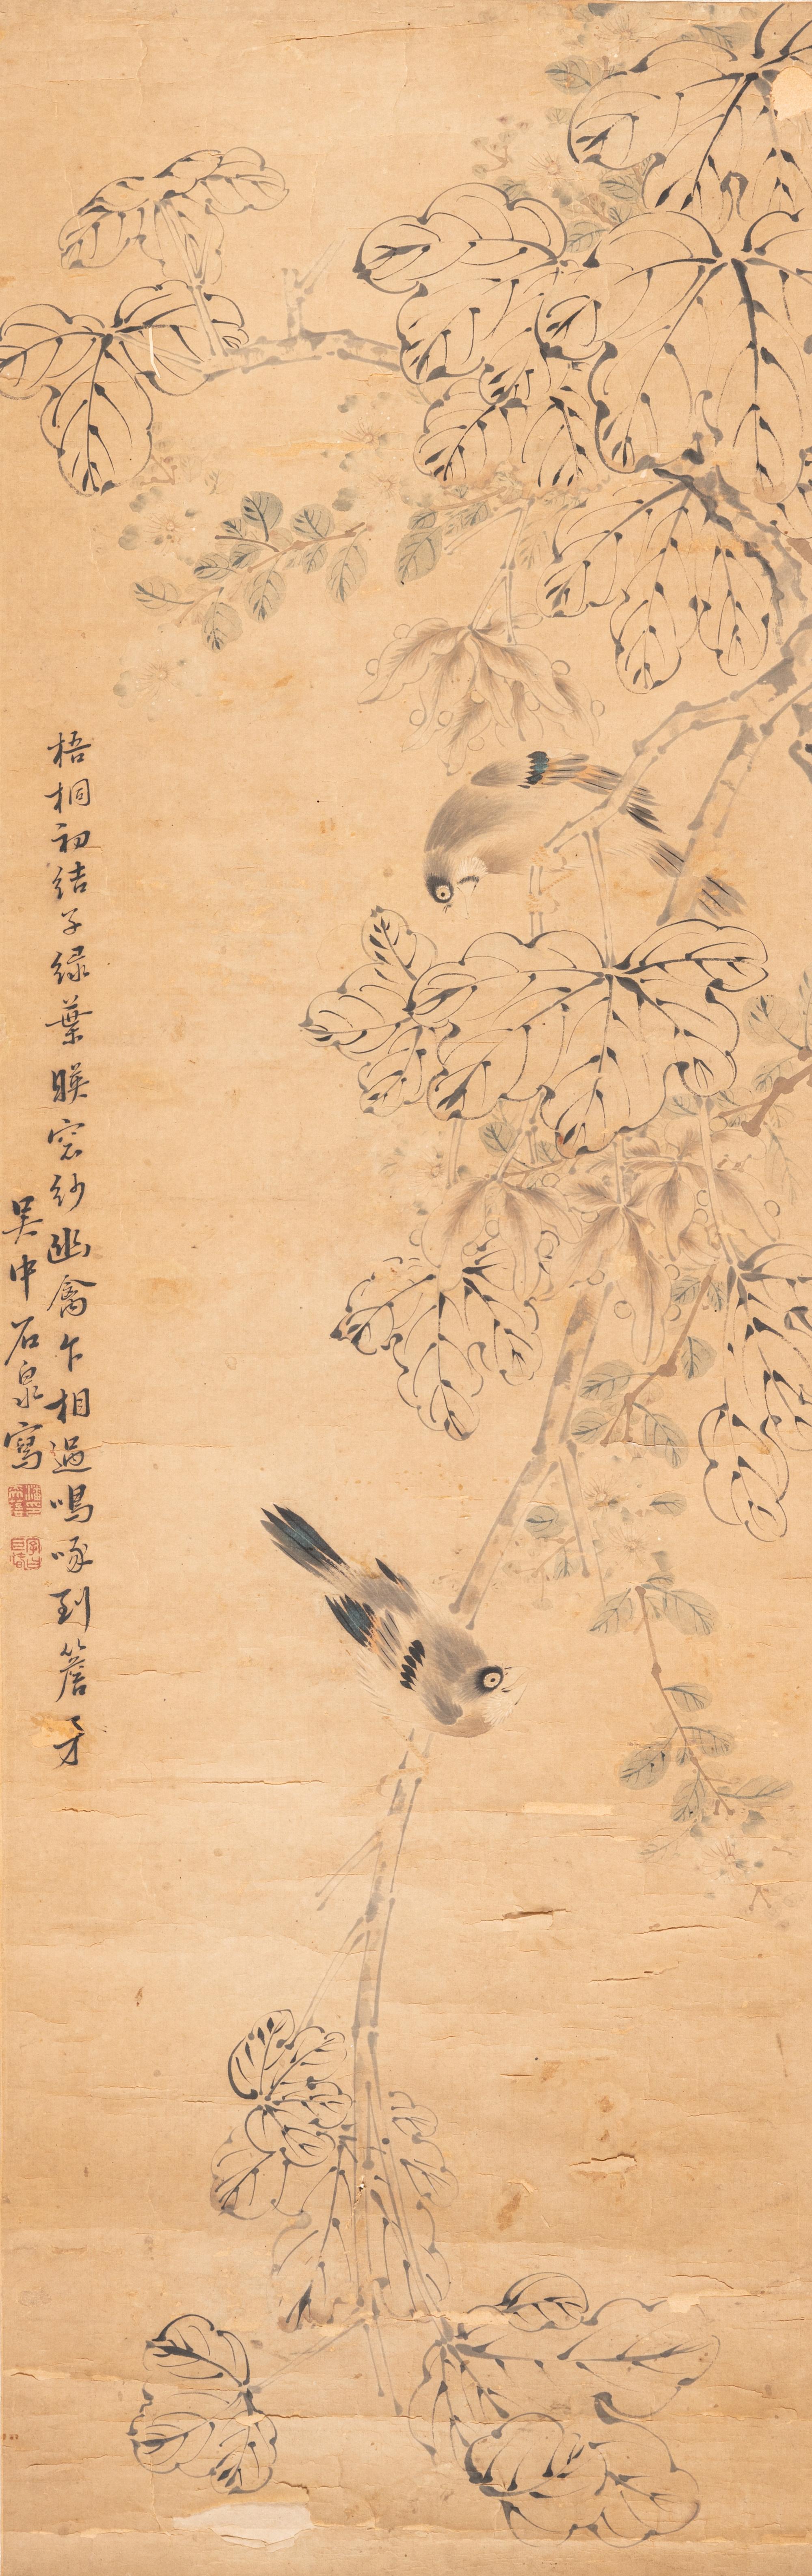 梧桐初结子绿葉暎窓紗幽禽乍相過鳴啄到簷牙
吴中石泉寫